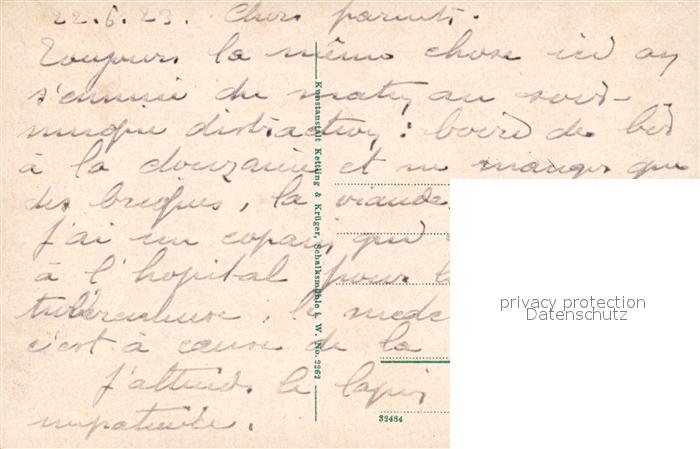 22.6.23. Chers parents.
Toujours la même chose ici on
s'ennuie du matin au soir-
unique distraction : boire de
à la douzaine et ne manger que
des briques, la viande
J'ai un copain qui
à l'hopital pour
tuberculeuse, le mede
c'est à cause de la
J'attends le lapin
impatiente.
Kunstanstalt Kettling & Krüger, Schalksmühle i. W. No. 2262
32484
privacy protection
Datenschutz